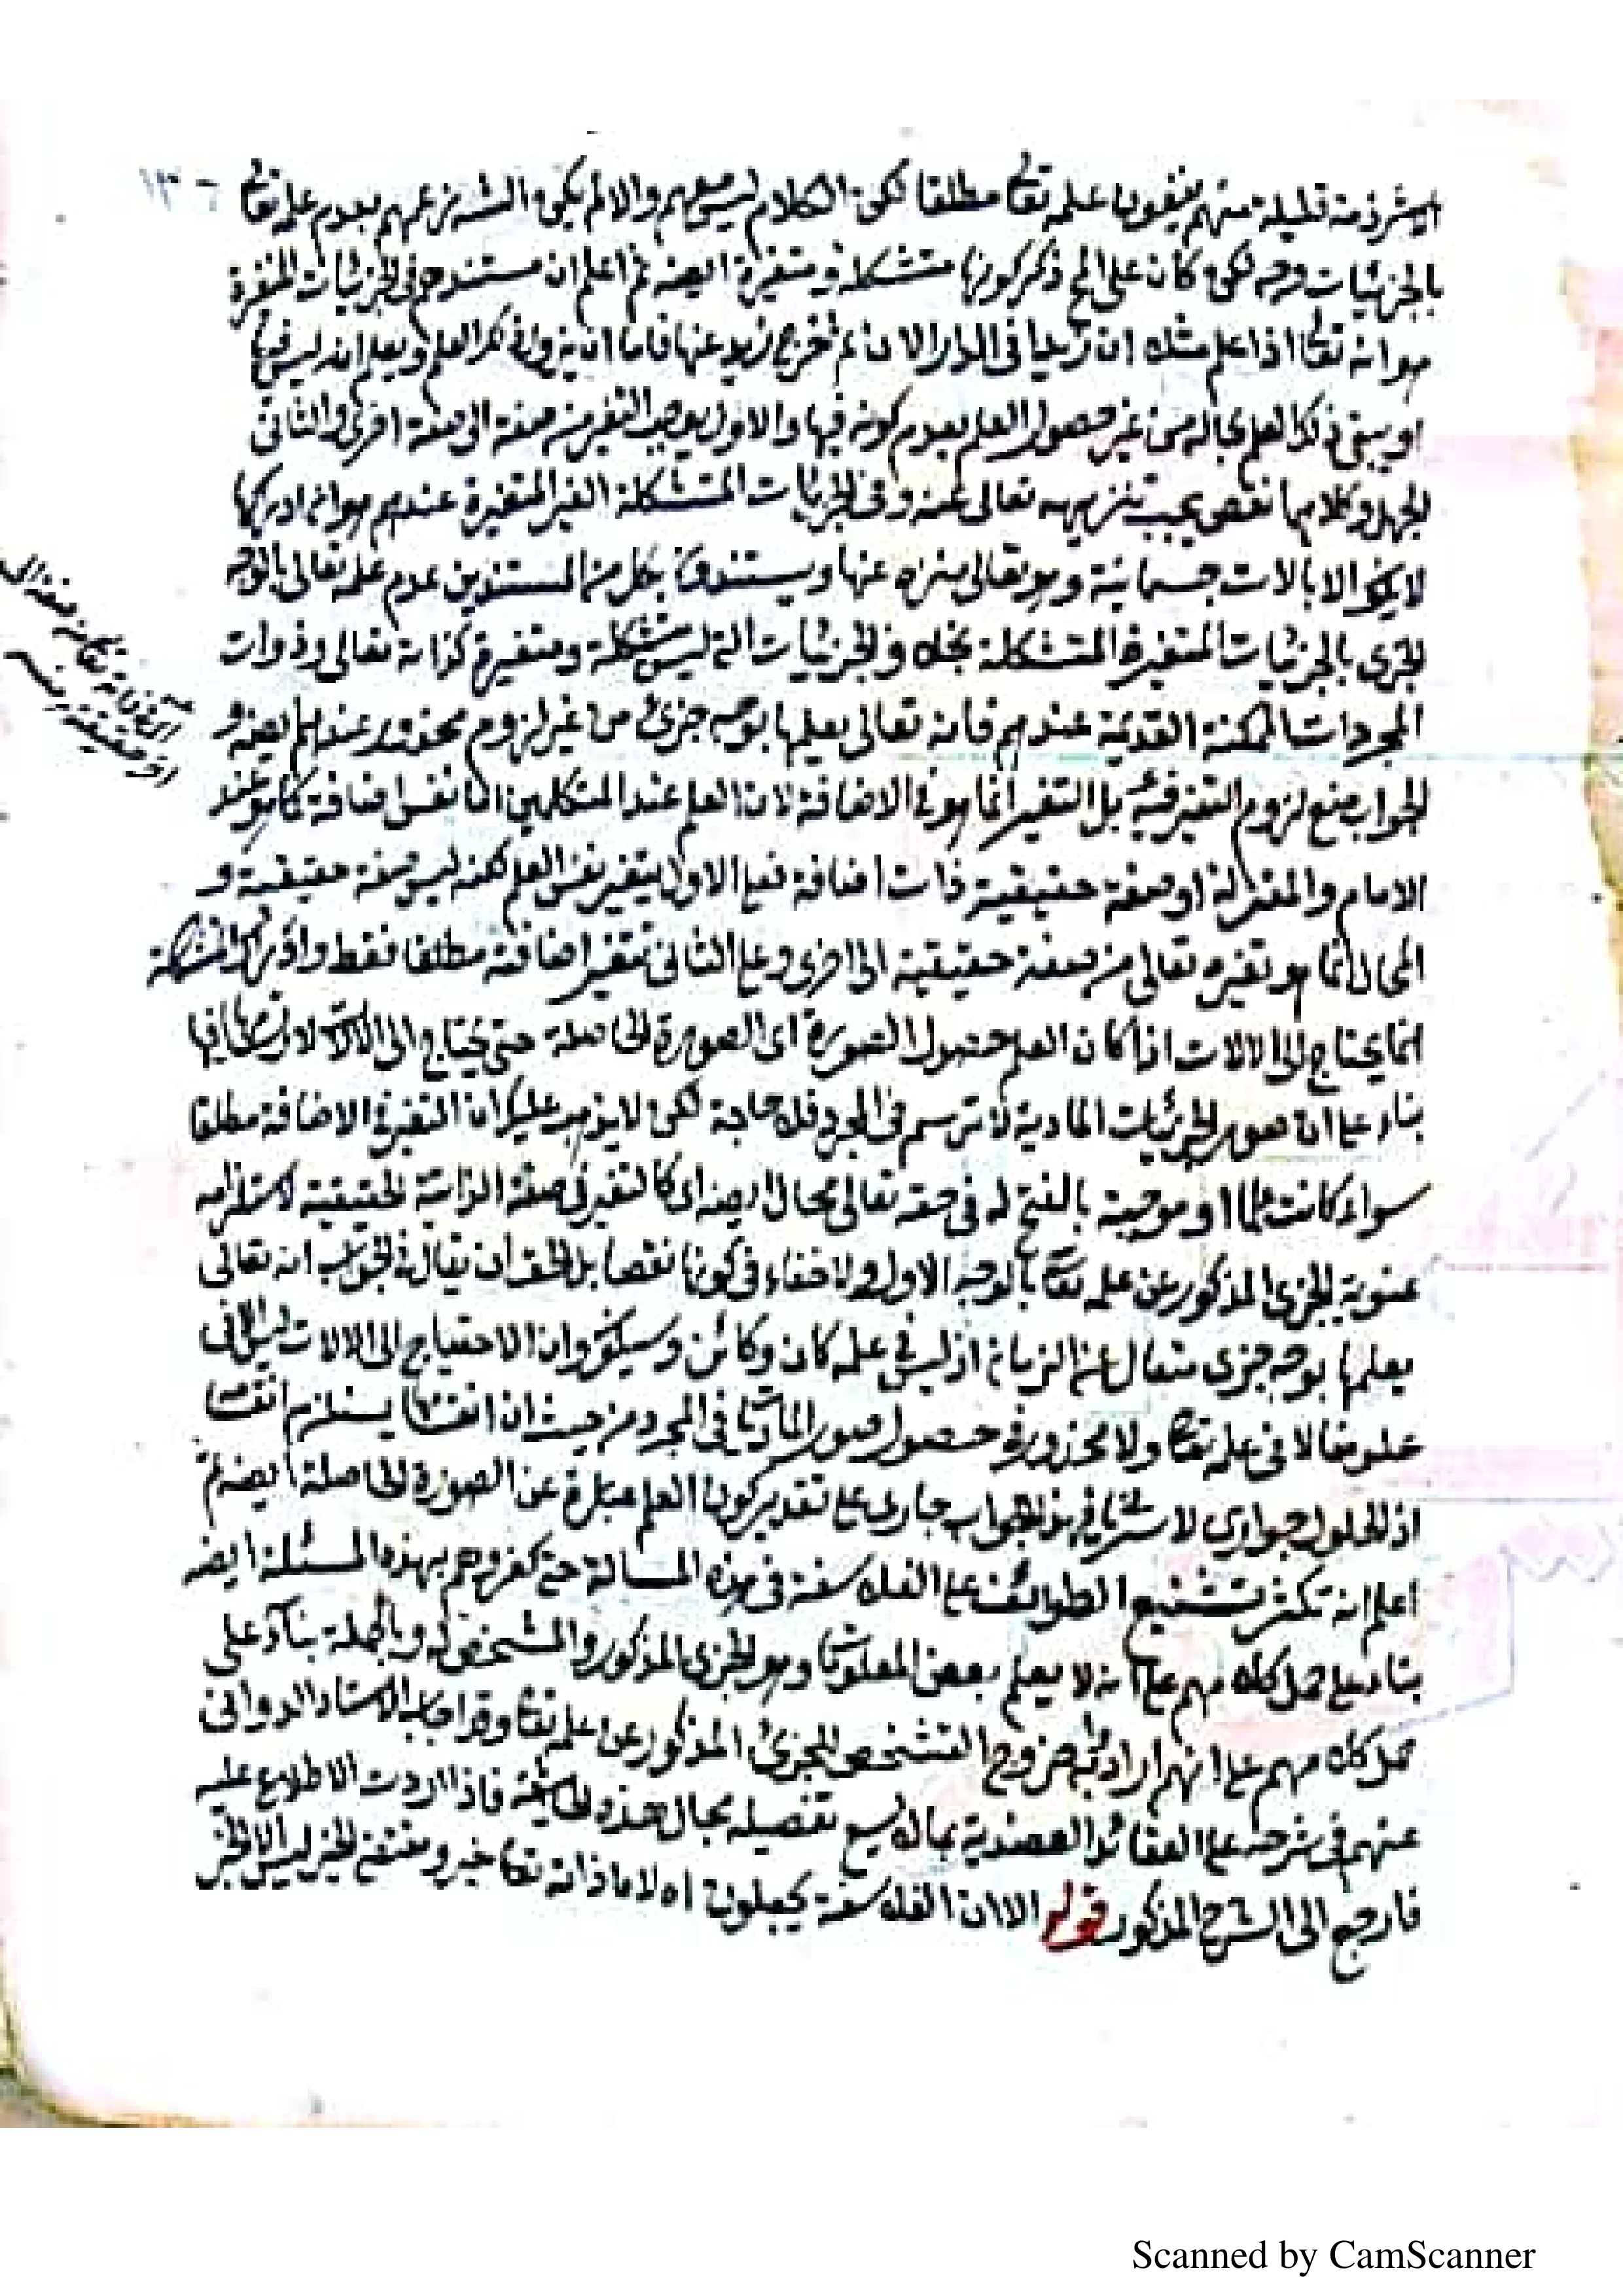 ١٣٠
شرذمة قليلة منهم ينفون علمه تعالى مطلقا لكن الكلام ليس معهم والا لم يكن عنهم بعدم علمه تعالى
بالجزئيات وجه لكن كان على ذكر كونها متشكلة ومتغيرة ايضه ثم اعلم ان مستندهم في الجزئيات المتغيرة
هو انه تعالى اذا علم مثلا ان زيدا في الدار الان ثم خرج زيد عنها فاما ان يزول ذلك العلم ويعلم انه ليس فيها
او يبقى ذلك العلم بحاله من غير حصول العلم بعدم كونه فيها والاول يوجب التغير من صفة الى صفة اخرى والثاني
الجهل وكلاهما نقص يجب تنزيهه تعالى عنه وفي الجزئيات المتشكلة الغير المتغيرة عندهم هو ان ادراكها
لا يكون الا بالات جسمانية وهو تعالى منزه عنها ويستندون بكل من المستندين عدم علمه تعالى بالوجه
الجزى بالجزئيات المتغيرة المتشكلة بخلاف الجزئيات التى ليس متشكلة ومتغيرة كذاته تعالى وذوات
المجردات الممكنة القديمة عندهم فانه تعالى يعلمها بوجه جزئى من غير لزوم محذور عندهم ايضه و
الجواب منع لزوم التغير فيه بل التغير انما هو فى الاضافة لان العلم عند المتكلمين اما نفس اضافة كما هو عند
الامام والمعتزلة او صفة حقيقية ذات اضافة فعلى الاول يتغير نفس العلم لكنه ليس صفة حقيقية و
المحال انما هو تغيره تعالى من صفة حقيقية الى اخرى وعلى الثانى تتغير اضافته مطلقا فقط وادراك المتشكلة
انما يحتاج الى الالات اذا كان العلم حصول الصورة اى الصورة الحاصلة حتى يحتاج الى الالات لارتسامها فيها
بناء على ان صور الجزئيات المادية لا ترتسم فى المجرد فلا حاجة لكن لا يذهب عليك ان التغير فى الاضافة مطلقا
سواء كانت علما او موجبة بالفتح له فى حقه تعالى محال ايضه اى كالتغير فى صفة الذاتية الحقيقية لاستلزامه
الجزى المذكور عن علمه تعالى بالوجه الاول ولا خفاء فى كونها نقصا بل الحق ان يقال فى الجواب انه تعالى
يعلمها بوجه جزى متعال عن الزمان اذ ليس فى علمه كان وكائن وسيكون وان الاحتياج الى الالات ليس الا فى
علومنا لا فى علمه تعالى ولا محذور فى حصول صور الماديات فى المجرد من حيث ان انقسامها يستلزم انقسامه
اذ الحلول جوارى لا سريانى فهذا الجواب جارى على تقدير كون العلم عبارة عن الصورة الحاصلة ايضه ثم
اعلم انه تكثر تشنيع الطوائف على الفلاسفة فى هذه المسالة حتى كفروهم بهذه المسئلة ايضه
بناء على حمل كلامهم على انه لا يعلم بعض المعلومات وهو الجزى المذكور والمشخص له وبالجملة بناء على
حمل كلامهم على انهم ارادوا به خروج التشخص للجزئى المذكور عن علمه تعالى وقد اجاب الاستاد الدوانى
عنهم فى شرحه على العقائد العضدية بما لا يسع تفصيله مجال هذه الحاشية فاذا اردت الاطلاع عليه
فارجع الى الشرح المذكور قوله الا ان الفلاسفة يجعلون اه لان ذاته تعالى خير ومقتضى الخير ليس الا الخير
Scanned by CamScanner